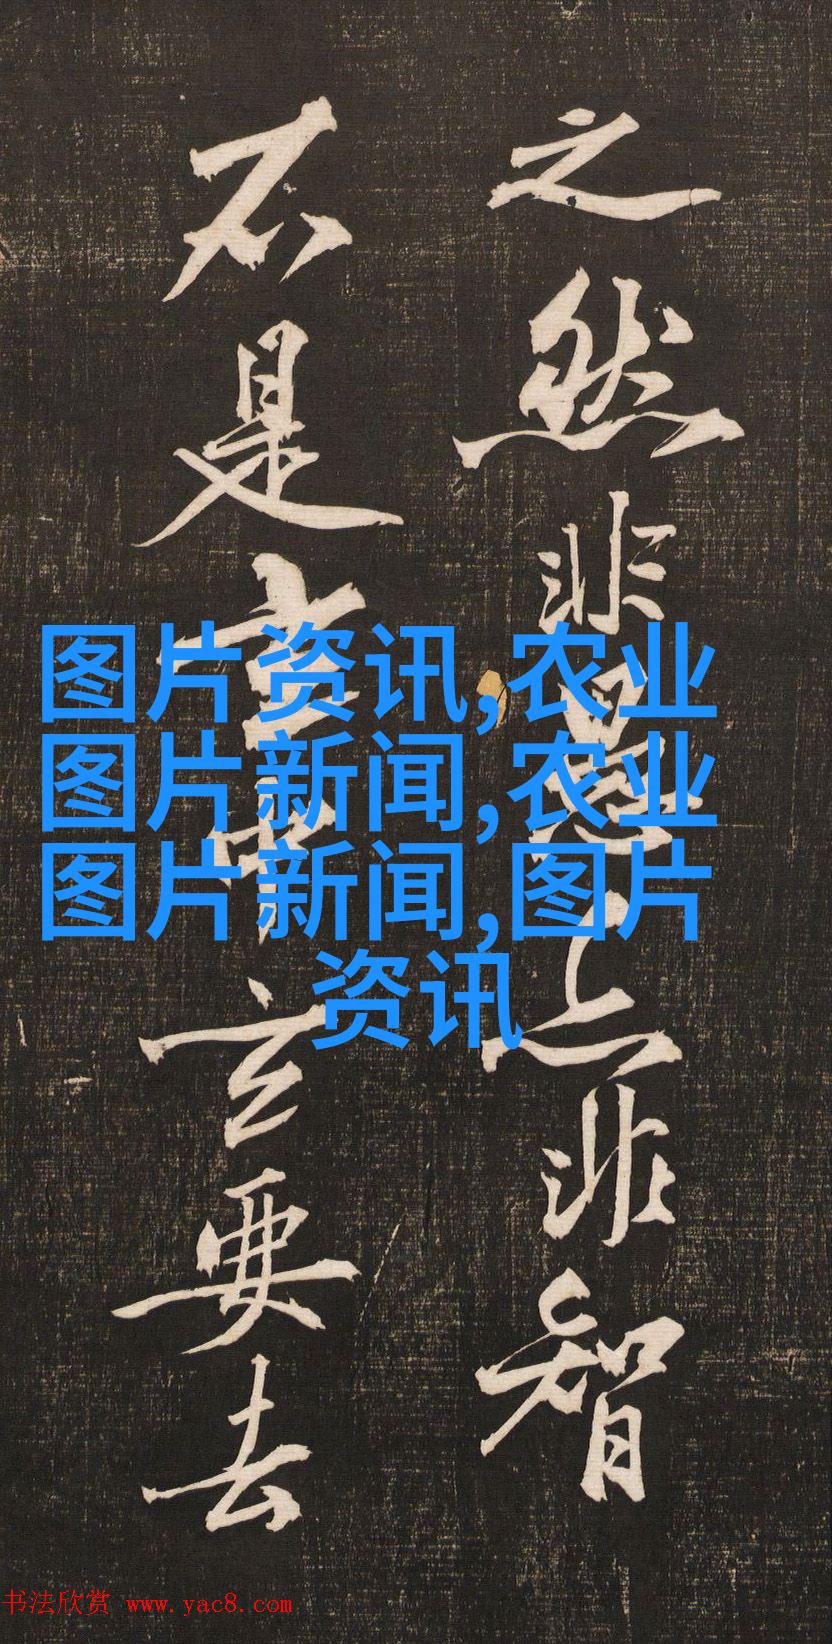 之然非愚上非智
不是玄中玄要去
图片资讯,农业
图片新闻,农业
图片新闻,图片
资讯
书法欣赏 www.yac8.com